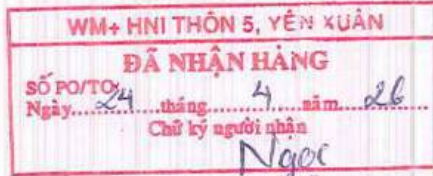 WM+ HNI THÔN 5, YÊN XUÂN
ĐÃ NHẬN HÀNG
SỐ PO/TO
Ngày...24...tháng...4...năm...26
Chữ ký người nhận
Ngọc